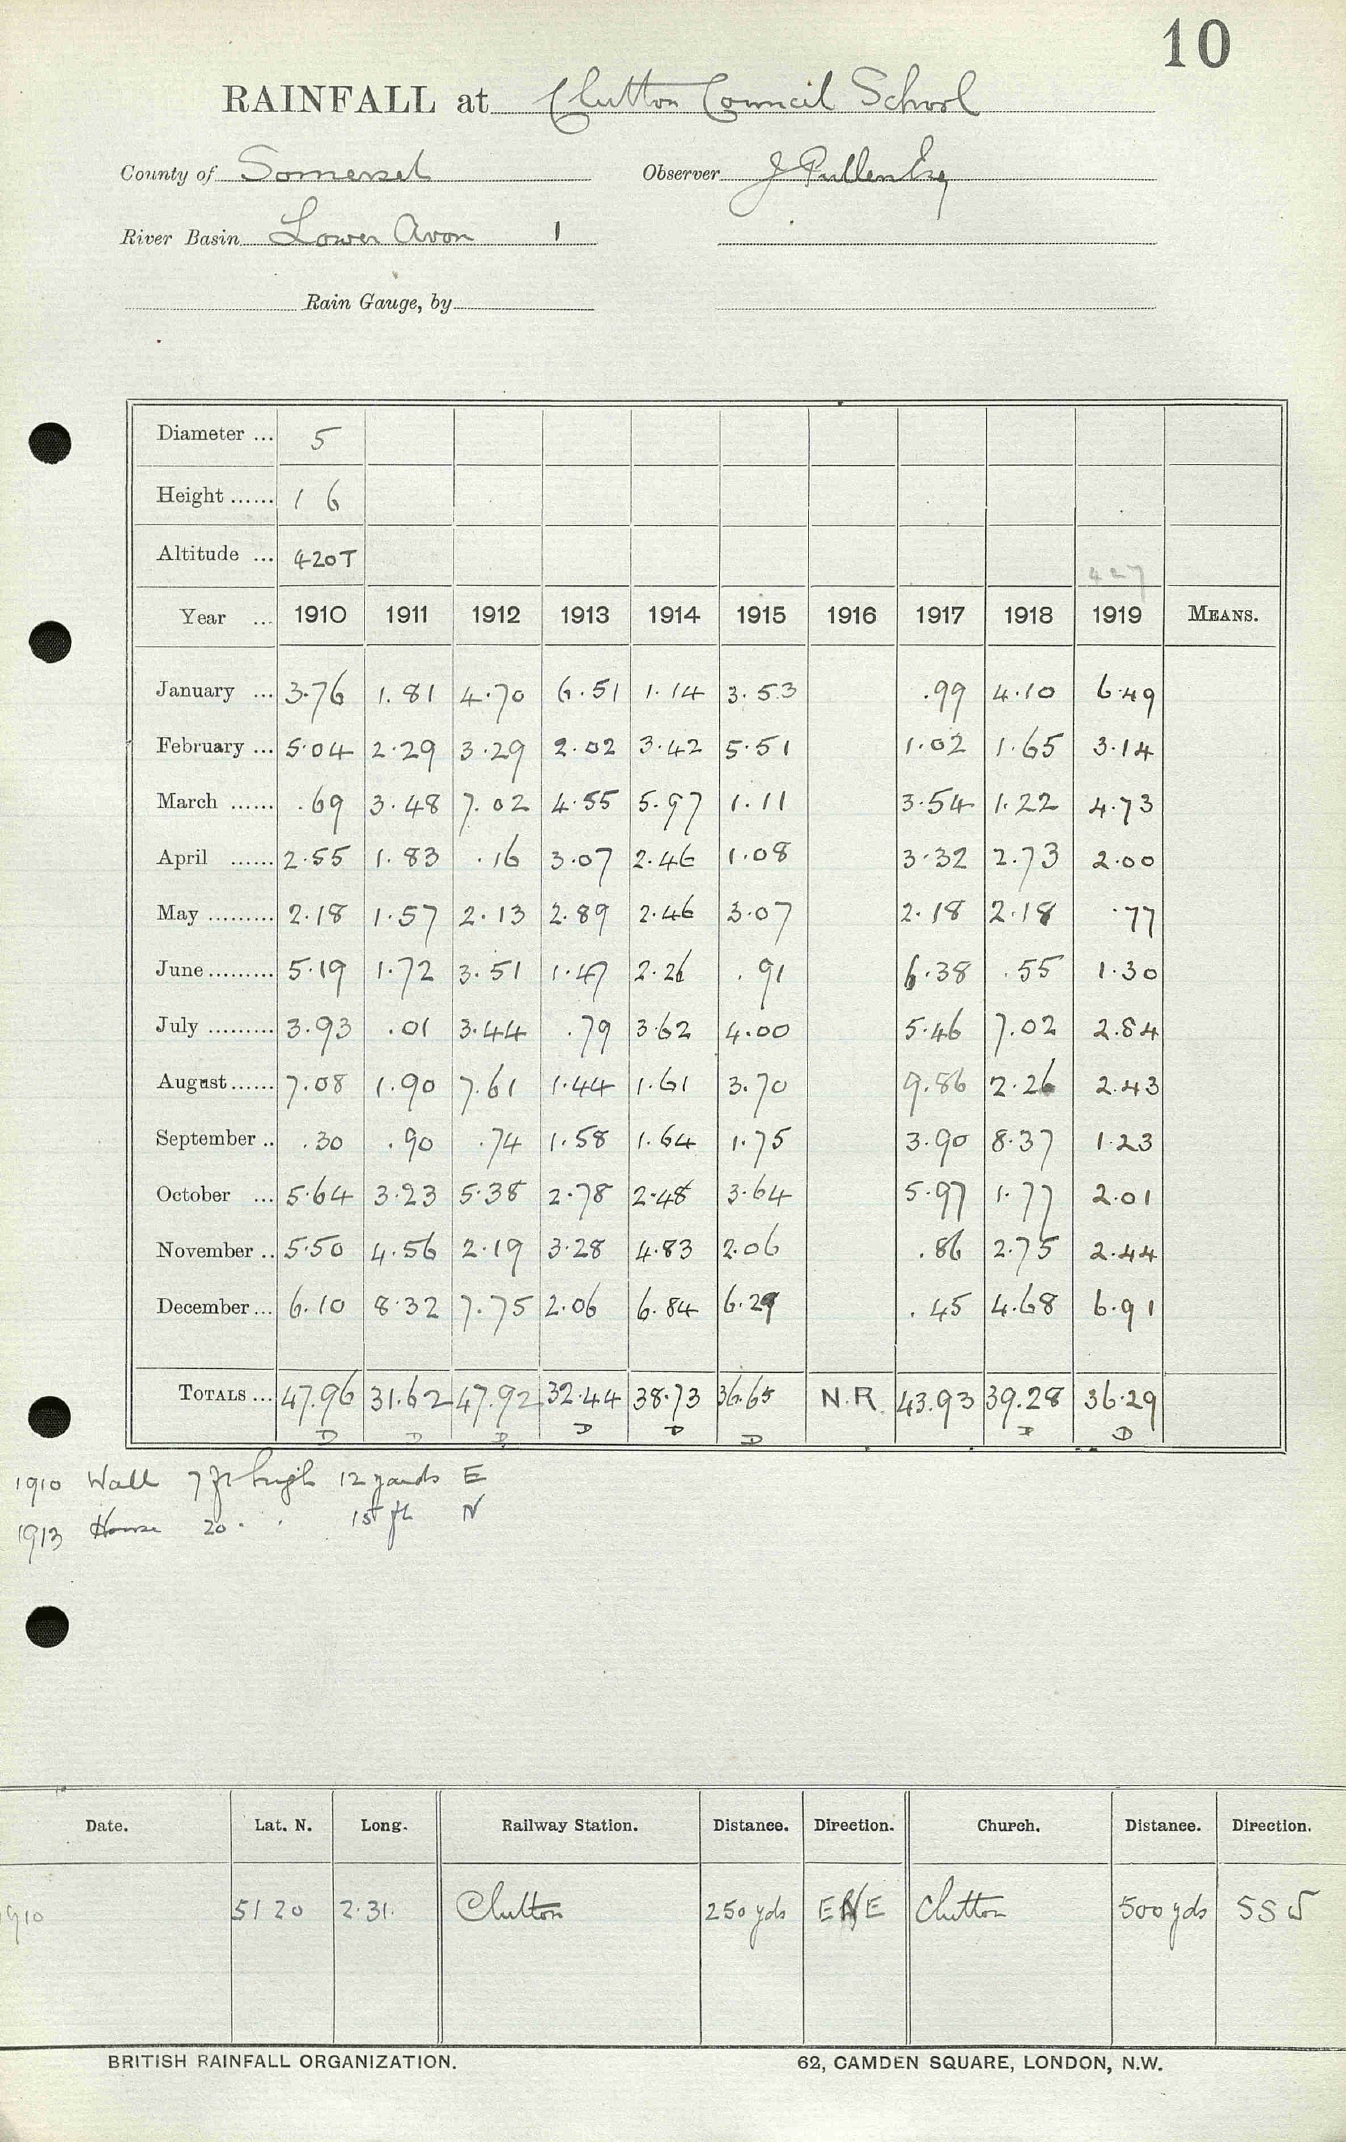 10
RAINFALL at Clutton Council School
County of Somerset Observer J Pullen Esq
River Basin Lower Avon 1
Rain Gauge, by
Diameter ... 5
Height ...... 1 6
Altitude ... 420T 427
Year ... 1910 1911 1912 1913 1914 1915 1916 1917 1918 1919 MEANS.
January ... 3.76 1.81 4.70 6.51 1.14 3.53 .99 4.10 6.49
February ... 5.04 2.29 3.29 2.02 3.42 5.51 1.02 1.65 3.14
March ...... .69 3.48 7.02 4.55 5.97 1.11 3.54 1.22 4.73
April ...... 2.55 1.83 .16 3.07 2.46 1.08 3.32 2.73 2.00
May ......... 2.18 1.57 2.13 2.89 2.46 3.07 2.18 2.18 .77
June ......... 5.19 1.72 3.51 1.47 2.26 .91 6.38 .55 1.30
July ......... 3.93 .01 3.44 .79 3.62 4.00 5.46 7.02 2.84
August ...... 7.08 1.90 7.61 1.44 1.61 3.70 9.86 2.26 2.43
September .. .30 .90 .74 1.58 1.64 1.75 3.90 8.37 1.23
October ... 5.64 3.23 5.38 2.78 2.48 3.64 5.97 1.77 2.01
November .. 5.50 4.56 2.19 3.28 4.83 2.06 .86 2.75 2.44
December ... 6.10 8.32 7.75 2.06 6.84 6.29 .45 4.68 6.91
TOTALS ... 47.96 31.62 47.92 32.44 38.73 36.65 N.R. 43.93 39.28 36.29
D D D D D D D D
1910 Wall 7 ft high 12 yards E
1913 House 20 " " 15 ft N
Date. Lat. N. Long. Railway Station. Distance. Direction. Church. Distance. Direction.
1910 51 20 2.31. Clutton 250 yds ENE Clutton 500 yds SSW
BRITISH RAINFALL ORGANIZATION. 62, CAMDEN SQUARE, LONDON, N.W.